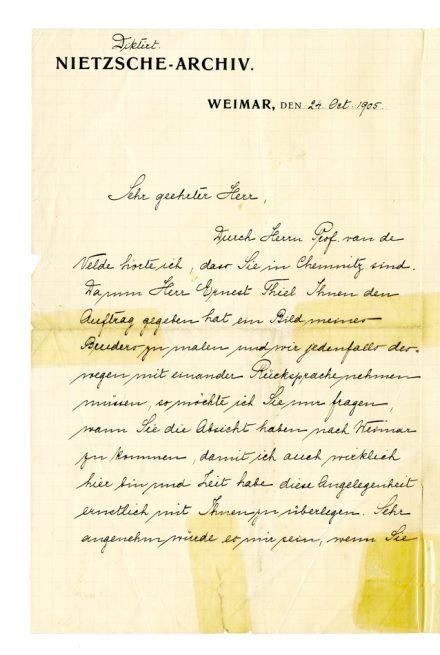 Diktirt.
NIETZSCHE-ARCHIV.
WEIMAR, DEN 24. Oct. 1905.
Sehr geehrter Herr,
Durch Herrn Prof. van de
Velde hörte ich, dass Sie in Chemnitz sind.
Da nun Herr Ernest Thiel Ihnen den
Auftrag gegeben hat ein Bild meines
Bruders zu malen und wir jedenfalls des-
wegen mit einander Rücksprache nehmen
müssen, so möchte ich Sie nur fragen,
wann Sie die Absicht haben nach Weimar
zu kommen, damit ich auch wirklich
hier bin und Zeit habe diese Angelegenheit
ernstlich mit Ihnen zu überlegen. Sehr
angenehm würde es mir sein, wenn Sie